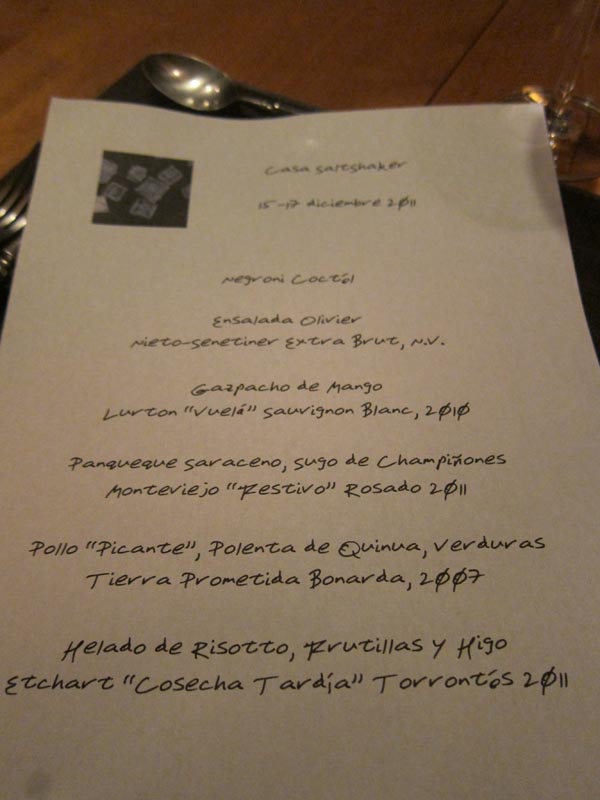 Casa Saltshaker
15-17 diciembre 2011
Negroni Coctél
Ensalada Olivier
Nieto-Senetiner Extra Brut, N.V.
Gazpacho de Mango
Lurton "Vuelá" Sauvignon Blanc, 2010
Panqueque Saraceno, Sugo de Champiñones
Monteviejo "Festivo" Rosado 2011
Pollo "Picante", Polenta de Quinua, Verduras
Tierra Prometida Bonarda, 2007
Helado de Risotto, Frutillas y Higo
Etchart "Cosecha Tardía" Torrontés 2011